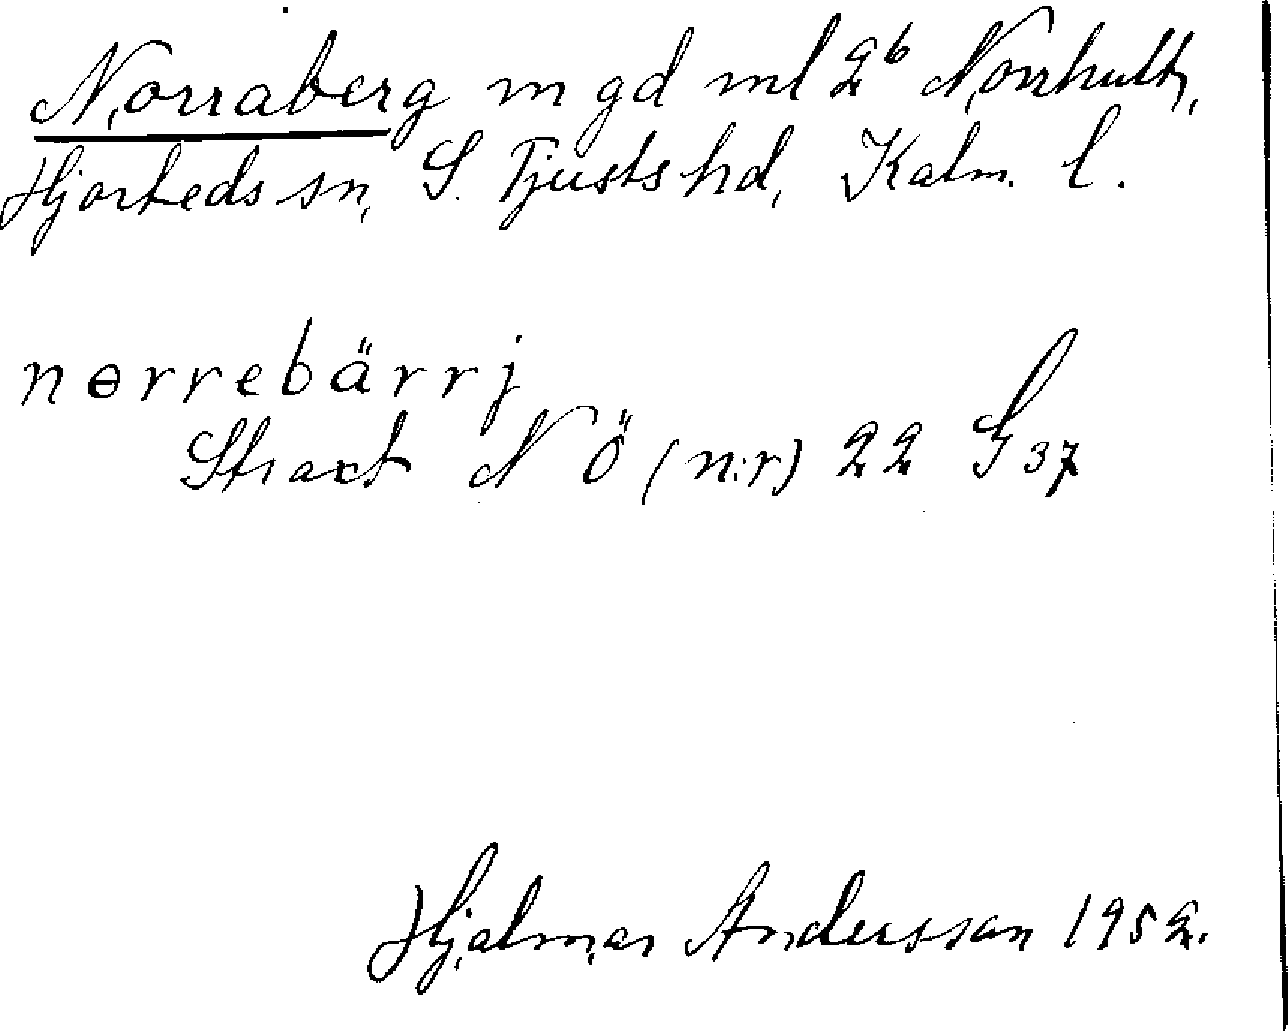 Norraberg m gd ml 2b Norrhult,
Hjorteds sn, S. Tjusts hd, Kalm. l.
nɵrrebärrj
Straxt N Ö (n:r) 22 G 37
Hjalmar Andersson 1952.